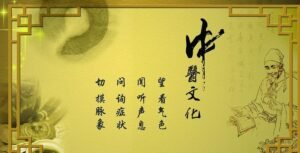 中醫文化
望看气色
闻听声息
问询症状
切摸脉象